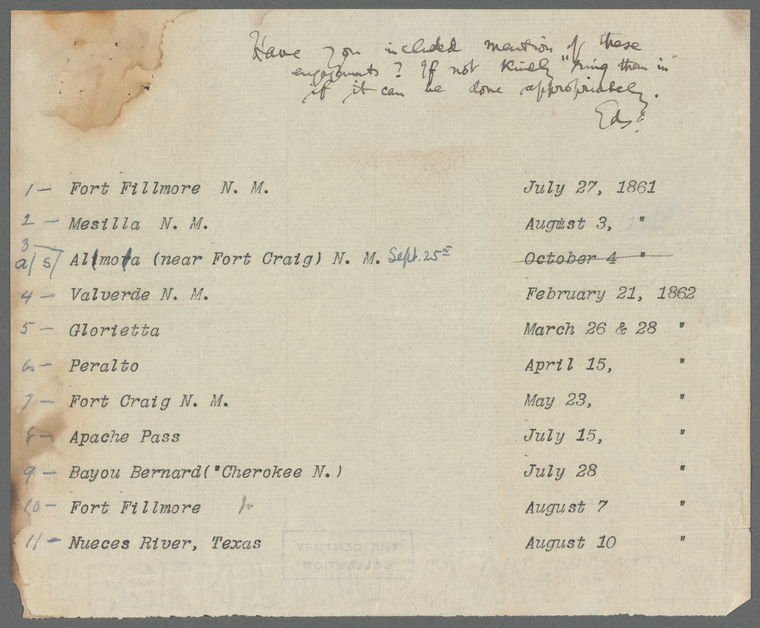 Have you included mention of these
engagements? If not kindly "ring them in"
if it can be done appropriately.
Eds.
1— Fort Fillmore N. M. July 27, 1861
2 — Mesilla N. M. August 3, "
3—
a/ s/ Almota (near Fort Craig) N. M. Sept. 25 October 4 "
4 — Valverde N. M. February 21, 1862
5 — Glorietta March 26 & 28 "
6 — Peralto April 15, "
7 — Fort Craig N. M. May 23, "
8 — Apache Pass July 15, "
9 — Bayou Bernard("Cherokee N.) July 28 "
10 — Fort Fillmore August 7 "
11 — Nueces River, Texas August 10 "
THE CENTURY
COLLECTION